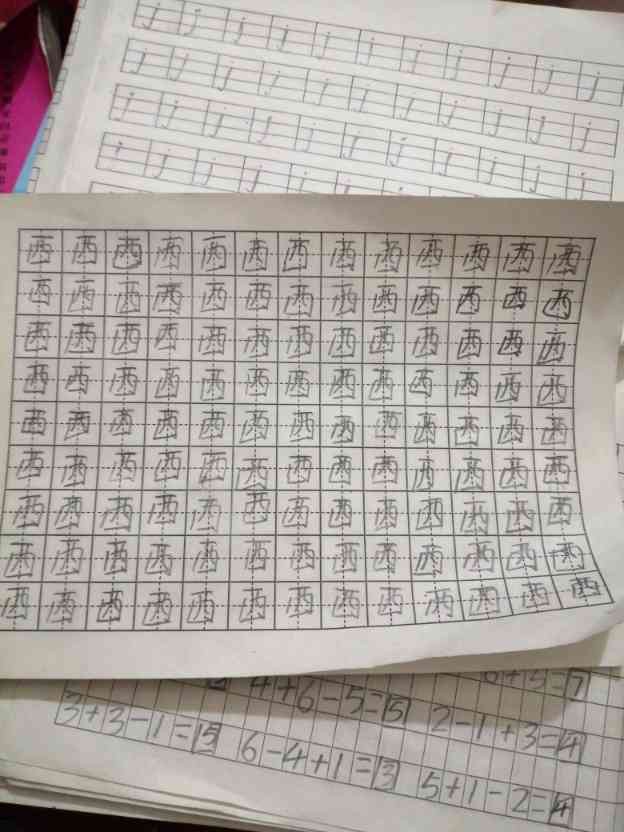 j j j j j j j j j j j
j j j j j j j j j j j
j j j j j j j j j j j
j j j j j j j j j j j
西西西西西西西西西西西西西
西西西西西西西西西西西西西
西西西西西西西西西西西西西
西西西西西西西西西西西西西
西西西西西西西西西西西西西
西西西西西西西西西西西西西
西西西西西西西西西西西西西
西西西西西西西西西西西西西
西西西西西西西西西西西西西
4+6-5=5 2-1+3=4
3+3-1=5 6-4+1=3 5+1-2=4